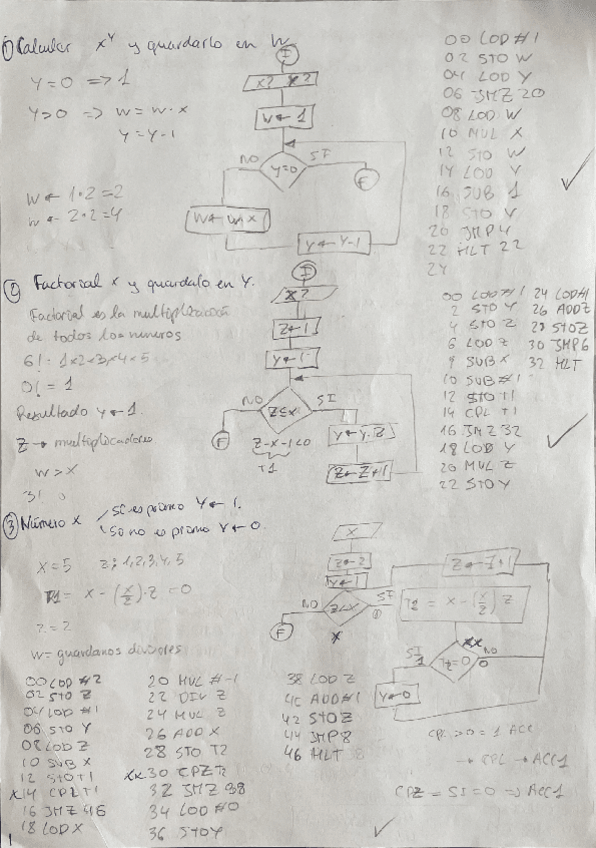 ① Calcular X^Y y guardarlo en W
Y=0 => 1
Y>0 => W = W·X
Y = Y-1
W ← 1·2 = 2
W ← 2·2 = 4
I
X? Y?
W ← 1
NO
SI
Y=0
F
W ← W·X
Y ← Y-1
00 LOD #1
02 STO W
04 LOD Y
06 JMZ 20
08 LOD W
10 MUL X
12 STO W
14 LOD Y
16 SUB 1
18 STO Y
20 JMP 4
22 HLT 22
24
② Factorial X y guardalo en Y.
Factorial es la multiplicación
de todos los numeros
6! = 1x2x3x4x5
0! = 1
Resultado Y ← 1.
Z → multiplicadores
W > X
3!
I
X?
Z ← 1
Y ← 1
NO
SI
Z≤X
F
Z-X-1<0
T1
Y ← Y·Z
Z ← Z+1
00 LOD #1
2 STO Y
4 STO Z
6 LOD Z
8 SUB X
10 SUB #1
12 STO T1
14 CPL T1
16 JMZ 32
18 LOD Y
20 MUL Z
22 STO Y
24 LOD #1
26 ADD Z
28 STO Z
30 JMP 6
32 HLT
③ Número X
Si es primo Y ← 1.
Si no es primo Y ← 0.
X=5
Z; 1,2,3,4,5
T1 = X - (X/Z)·Z = 0
Z = 2
W = guardamos divisores
X
Z ← 2
Y ← 1
NO
SI
Z<X
F
X
Z ← Z+1
T2 = X - (X/Z) Z
XX
SI
1
T2=0
NO
0
Y ← 0
00 LOD #2
02 STO Z
04 LOD #1
06 STO Y
08 LOD Z
10 SUB X
12 STO T1
X 14 CPL T1
16 JMZ 46
18 LOD X
20 MUL #-1
22 DIV Z
24 MUL Z
26 ADD X
28 STO T2
XX 30 CPZ T2
32 JMZ 38
34 LOD #0
36 STO Y
38 LOD Z
40 ADD #1
42 STO Z
44 JMP 8
46 HLT
CPL >0 = 1 ACC
→ CPL → ACC 1
CPZ = SI = 0 → ACC 1
1